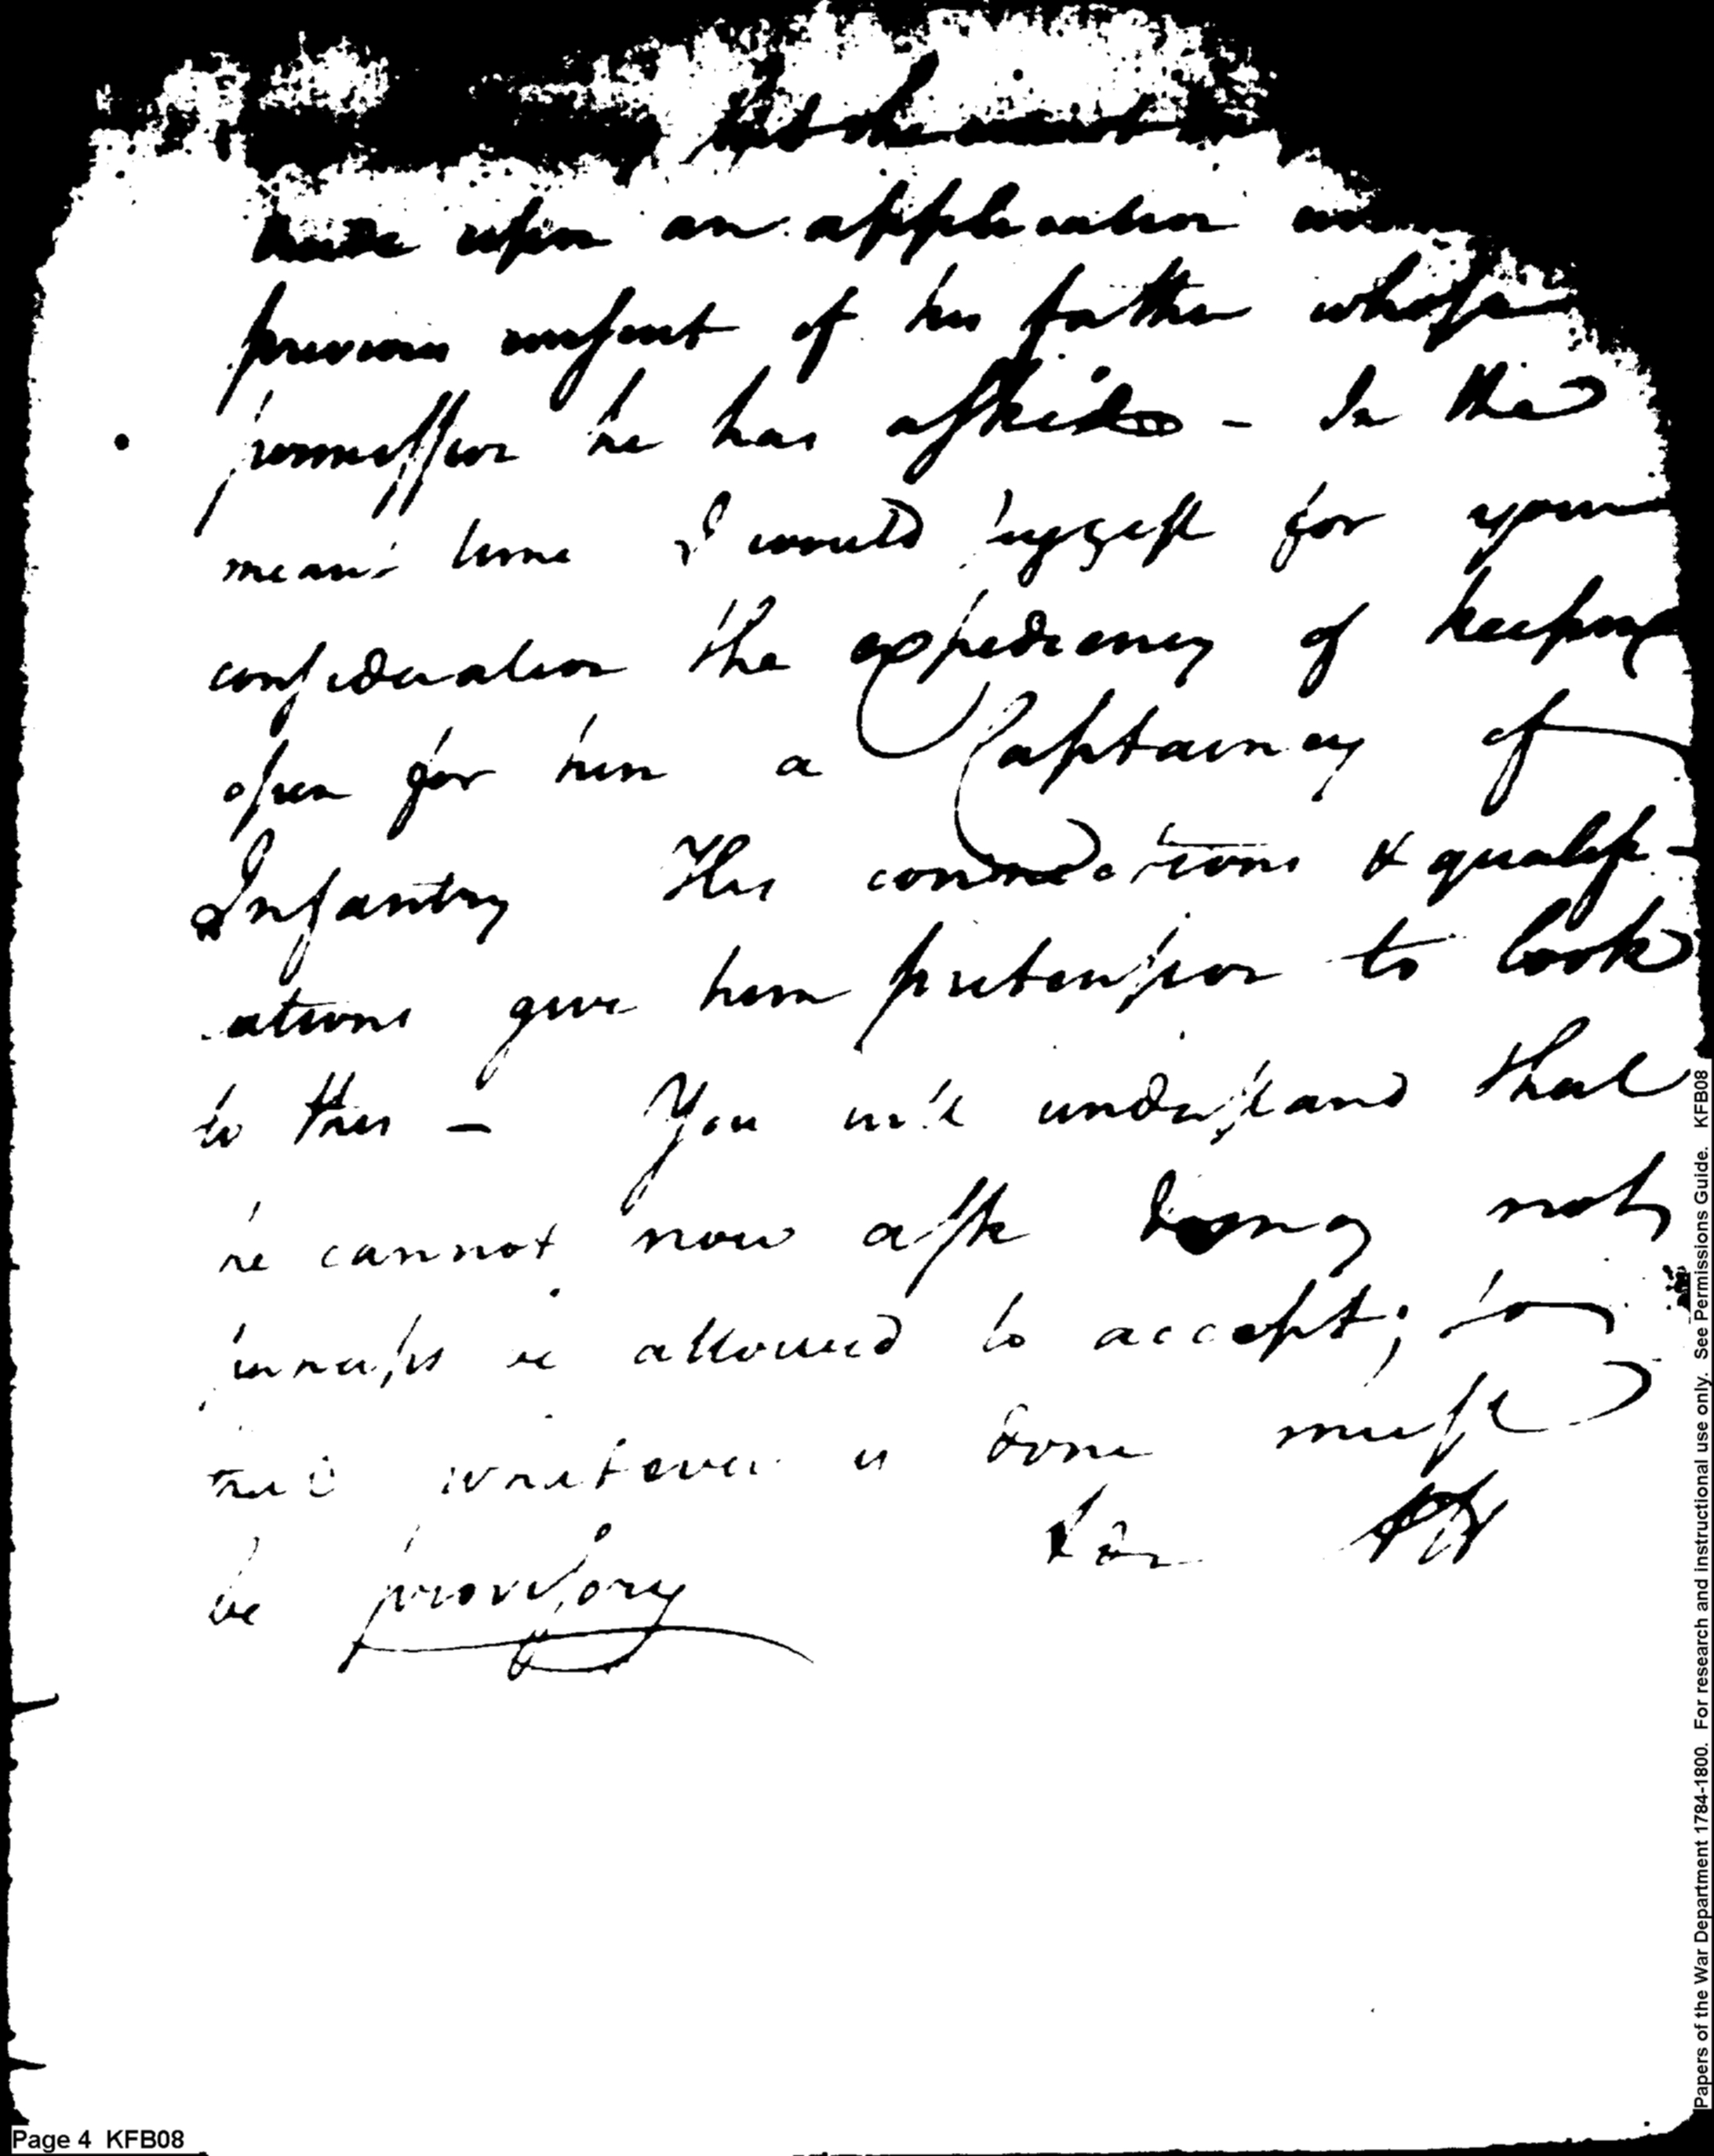 upon an application
previous consent of his father whose
permission he has asked - In the
mean time I would suggest for your
consideration the expediency of keeping
open for him a Captaincy of
Infantry His connections & qualifi-
-ations give him pretension to look
to this - You will understand that
he cannot now ask being not
perhaps be allowed to accept; so
that whatever is done must
be provisory
AH
Page 4 KFB08
Papers of the War Department 1784-1800. For research and instructional use only. See Permissions Guide. KFB08